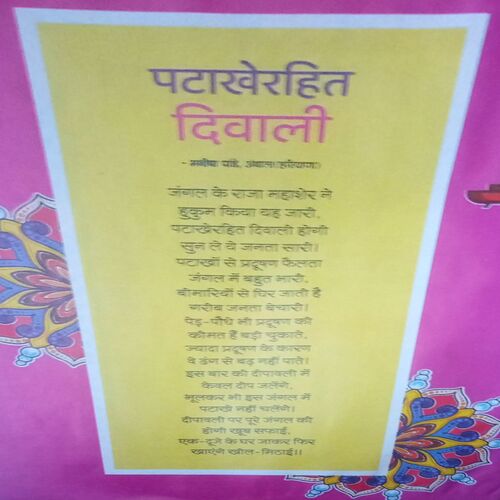 पटाखेरहित
दिवाली
- मनीष पांडे, अंबाला (हरियाणा)
जंगल के राजा महाशेर ने
हुकुम किया यह जारी,
पटाखेरहित दिवाली होगी
सुन ले ये जनता सारी।
पटाखों से प्रदूषण फैलता
जंगल में बहुत भारी,
बीमारियों से घिर जाती है
गरीब जनता बेचारी।
पेड़-पौधे भी प्रदूषण की
कीमत हैं बड़ी चुकाते,
ज्यादा प्रदूषण के कारण
वे ढंग से बढ़ नहीं पाते।
इस बार की दीपावली में
केवल दीप जलेंगे,
भूलकर भी इस जंगल में
पटाखे नहीं चलेंगे।
दीपावली पर पूरे जंगल की
होगी खूब सफाई,
एक-दूजे के घर जाकर फिर
खाएंगे खील-मिठाई।।